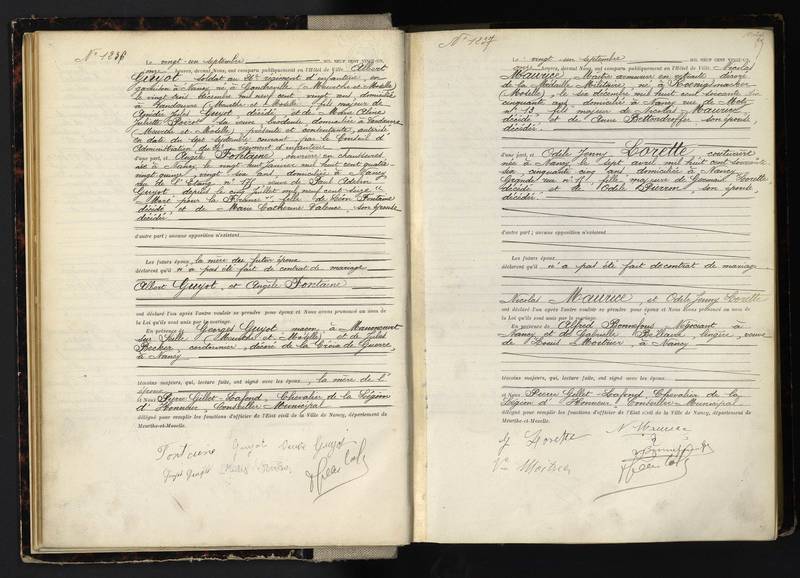 N° 1236
Le vingt un septembre mil neuf cent vingt-un,
onze heures, devant Nous, ont comparu publiquement en l'Hôtel de Ville Albert
Guyot soldat au régiment d'infanterie, en
garnison à Nancy, né à Gondreville (Meurthe et Moselle)
le vingt trois décembre mil neuf cent vingt ans, domicilié
à Vandœuvre (Meurthe et Moselle), fils majeur de
Jules Guyot, décédé, et de Marie Céline
Juliette sa veuve, domiciliée à Vandœuvre
(Meurthe et Moselle), présente et consentante, autorisé
en date du septembre courant par le Conseil d'
Administration du régiment d'infanterie
d'une part, et Angèle Fontaine, ouvrière en chaussures
née à Nancy le vingt janvier mil huit cent quatre-
vingt quinze, vingt six ans, domiciliée à Nancy
rue de l'Etang n° veuve de Paul
Guyot depuis le juillet mil neuf cent seize "
Mort pour la France ", fille de Léon Fontaine
décédé, et de Marie Catherine son épouse
décédée
d'autre part ; aucune opposition n'existant
Les futurs époux, la mère du futur époux
déclarent qu'il n'a pas été fait de contrat de mariage
Albert Guyot, et Angèle Fontaine
ont déclaré l'un après l'autre vouloir se prendre pour époux et Nous avons prononcé au nom de
la Loi qu'ils sont unis par le mariage.
En présence de Georges Guyot maçon, à
sur Seille (Meurthe et Moselle), et de Jules
cordonnier, décoré de la Croix de Guerre,
à Nancy
témoins majeurs, qui, lecture faite, ont signé avec les époux, la mère de l'
époux
et Nous Pierre Gillet-Lafond, Chevalier de la Légion
d'Honneur, Conseiller Municipal
délégué pour remplir les fonctions d'officier de l'Etat civil de la Ville de Nancy, département de
Meurthe-et-Moselle.
Fontaine Guyot Veuve Guyot
N° 1237
Le vingt un septembre mil neuf cent vingt-un,
onze heures, devant Nous, ont comparu publiquement en l'Hôtel de Ville Nicolas
Maurice, Maître armurier en retraite, décoré
de la Médaille Militaire, né à Koenigsmacker
(Moselle), le six décembre mil huit cent soixante
cinquante ans, domicilié à Nancy rue de Metz
n° 13 fils majeur de Nicolas Maurice
décédé et de Anne son épouse,
décédée.
d'une part, et Odile Jenny Lorette, couturière
née à Nancy le sept avril mil huit cent soixante
six, cinquante cinq ans, domiciliée à Nancy
Grande rue n° fille majeure de Lorette
décédé et de Odile Pierron, son épouse,
décédée.
d'autre part ; aucune opposition n'existant
Les futurs époux
déclarent qu'il n'a pas été fait de contrat de mariage
Nicolas Maurice, et Odile Jenny Lorette
ont déclaré l'un après l'autre vouloir se prendre pour époux et Nous avons prononcé au nom de
la Loi qu'ils sont unis par le mariage.
En présence de Alfred Bonnefons, Négociant à
Nancy, et de Gabrielle lingère, veuve
de Louis Moitrier, à Nancy
témoins majeurs, qui, lecture faite, ont signé avec les époux,
et Nous Pierre Gillet-Lafond, Chevalier de la
Légion d'Honneur, Conseiller Municipal
délégué pour remplir les fonctions d'officier de l'Etat civil de la Ville de Nancy, département de
Meurthe-et-Moselle.
Lorette N. Maurice
Vve Moitrier